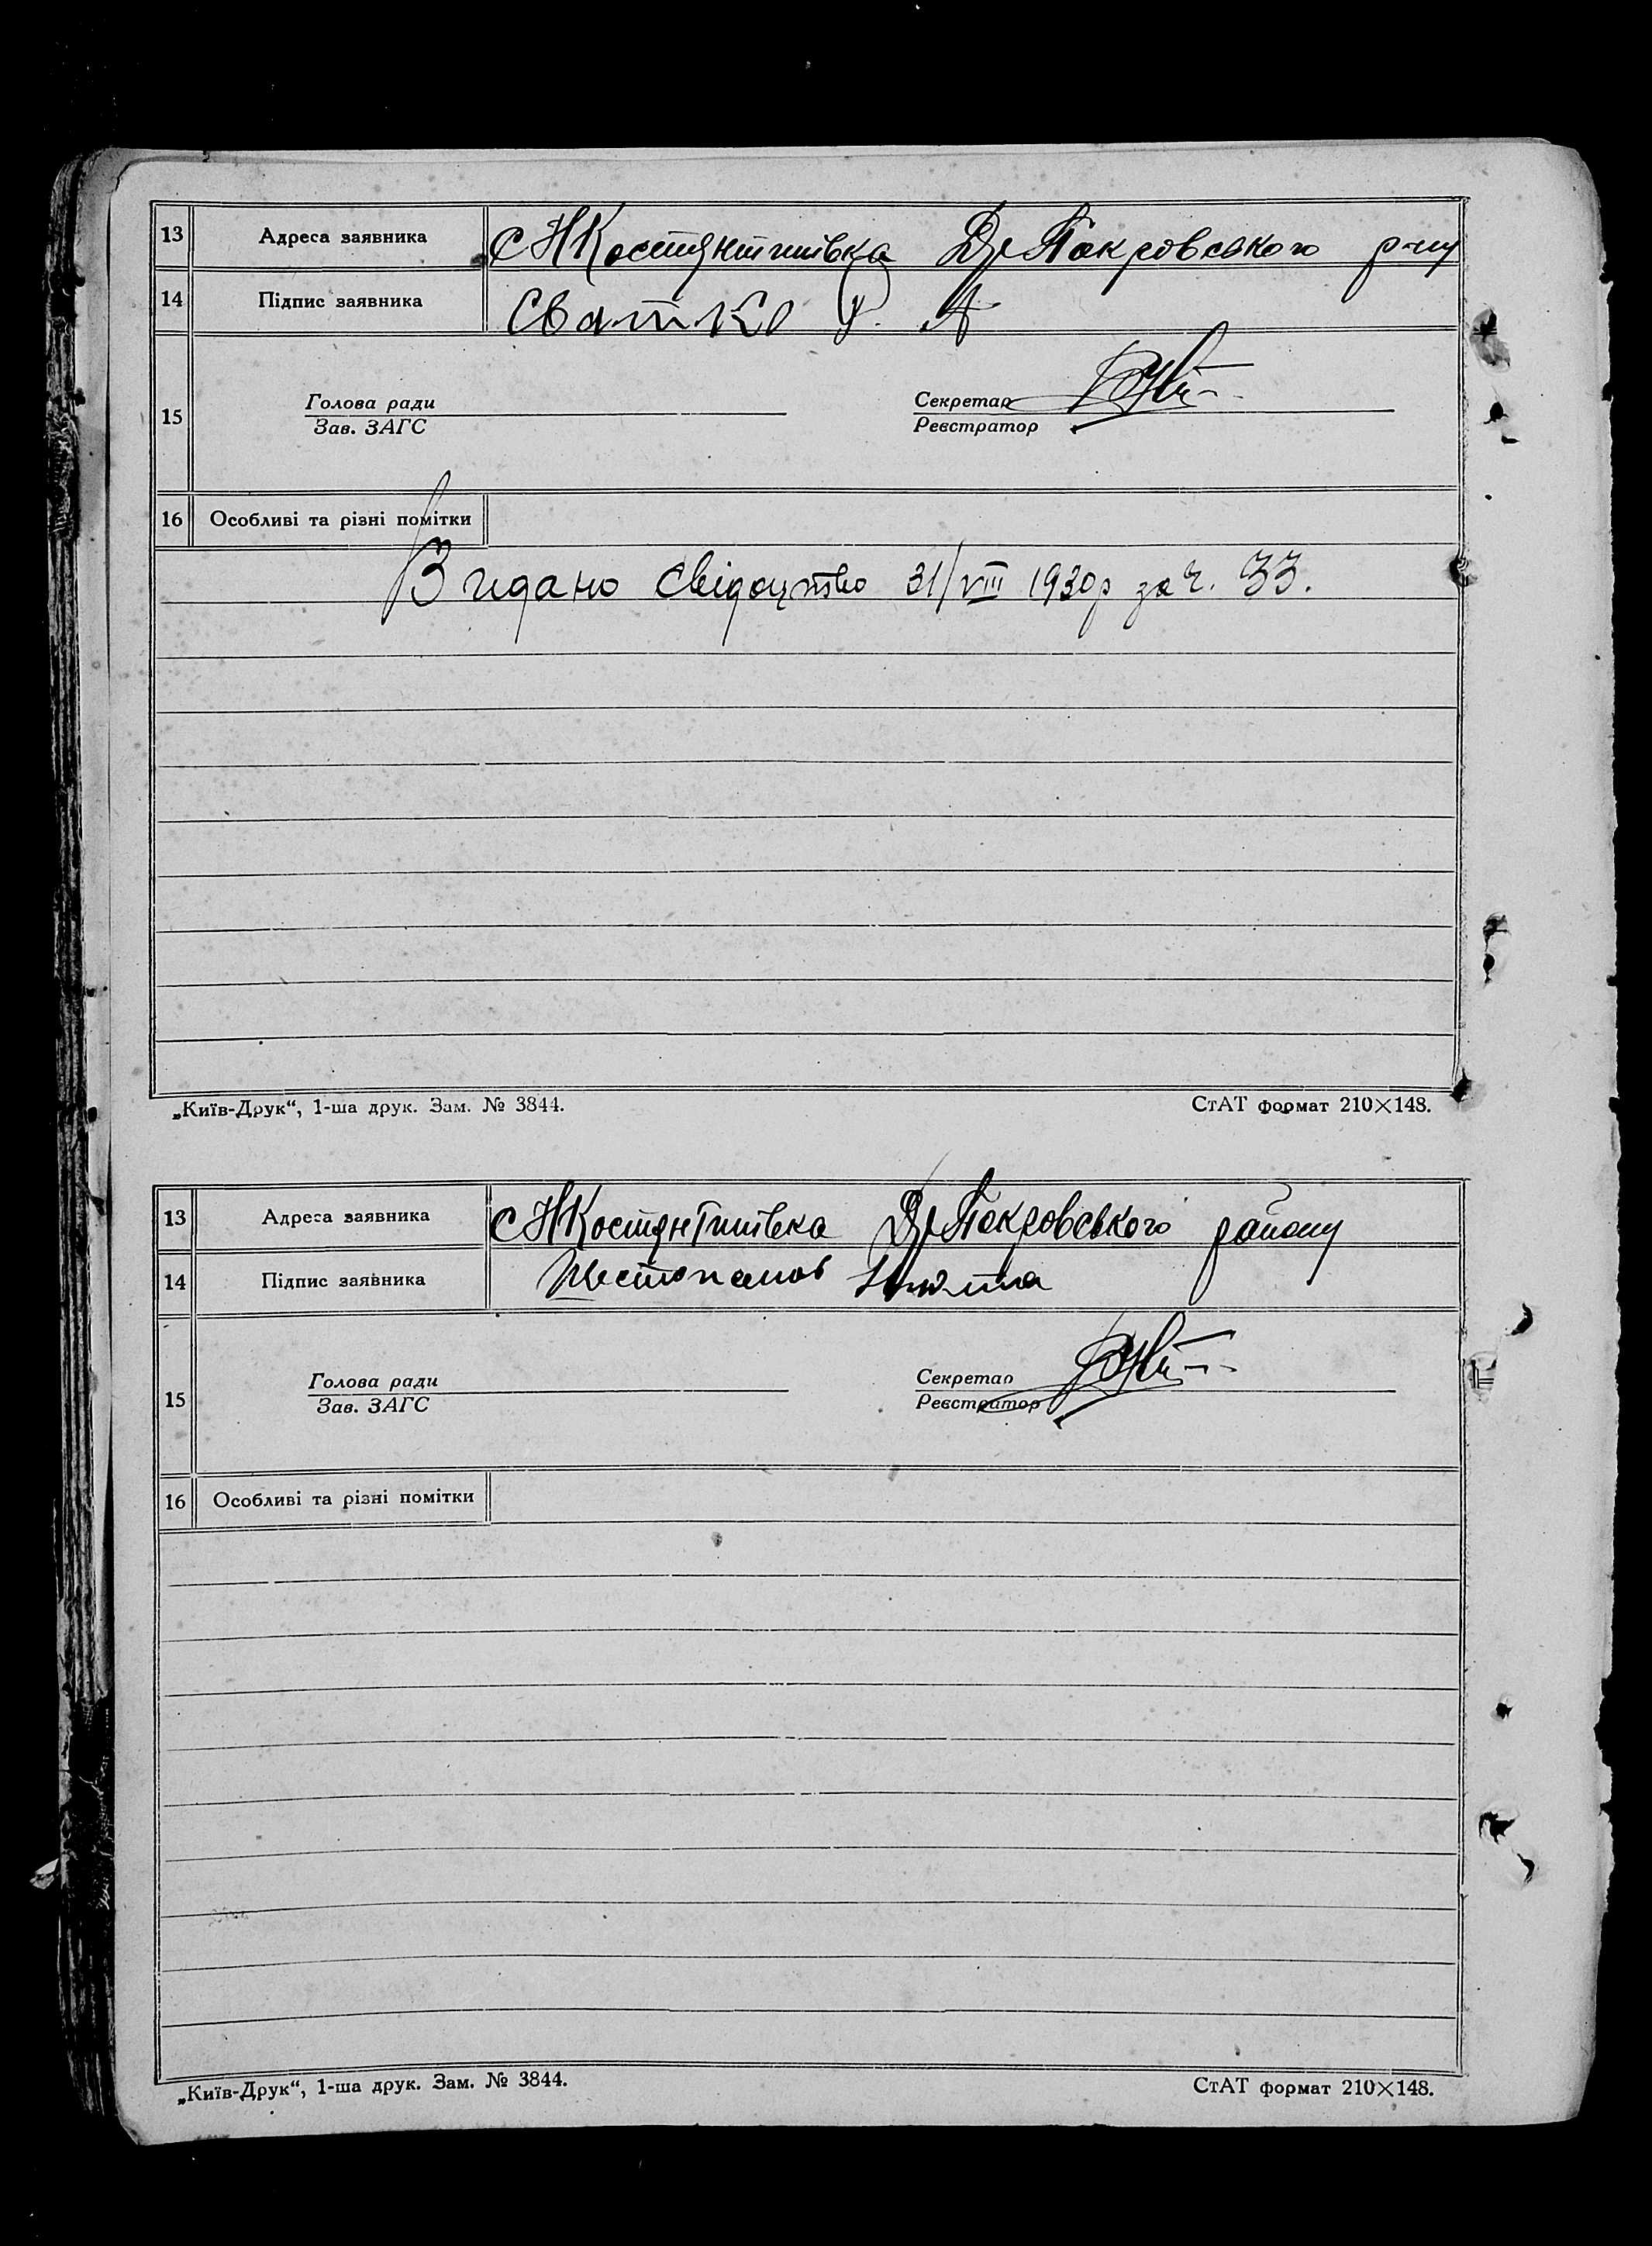 13 Адреса заявника с НКостянтинівка Др Покровського р-ну
14 Підпис заявника Сватко Ф. А
15 Голова ради Секретар
Зав. ЗАГС Реєстратор
16 Особливі та різні помітки
Видано свідоцтво 31/VIII 1930р за ч. 33.
„Київ-Друк“, 1-ша друк. Зам. № 3844. СтАТ формат 210×148.
13 Адреса заявника с НКостянтинівка Др Покровського району
14 Підпис заявника Шестопалов
15 Голова ради Секретар
Зав. ЗАГС Реєстратор
16 Особливі та різні помітки
„Київ-Друк“, 1-ша друк. Зам. № 3844. СтАТ формат 210×148.